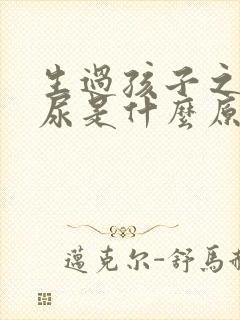 生過孩子之
尿是什麼原
邁克尔-舒馬赫